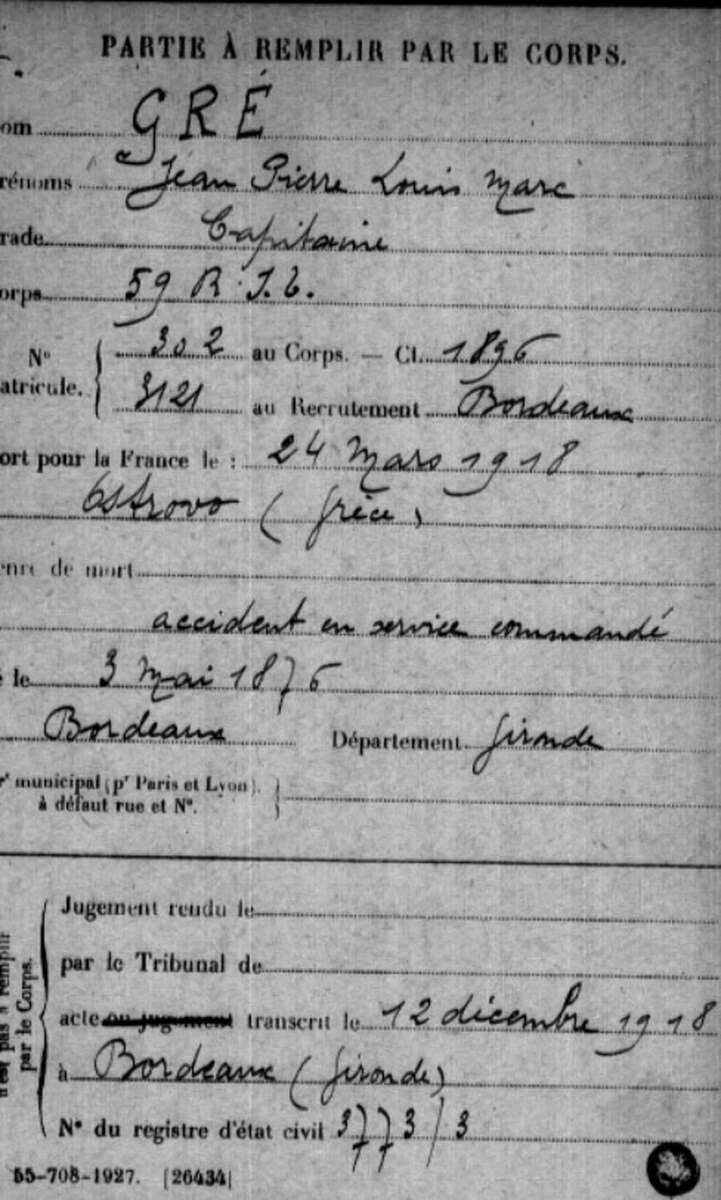 PARTIE À REMPLIR PAR LE CORPS.
om GRÉ
rénoms Jean Pierre Louis Marc
rade Capitaine
orps 59 R.I.t.
N° atricule. { 302 au Corps. — Cl. 1896
3121 au Recrutement Bordeaux
ort pour la France le : 24 Mars 1918
Ostrovo (Grèce)
enre de mort
accident en service commandé
é le 3 Mai 1876
Bordeaux Département Gironde
rt municipal (pr Paris et Lyon),
à défaut rue et N°.
Jugement rendu le
par le Tribunal de
acte ou jugement transcrit le 12 décembre 1918
à Bordeaux (Gironde)
N° du registre d'état civil 3773/3
n'est pas à remplir
par le Corps.
55-708-1927. [26434]